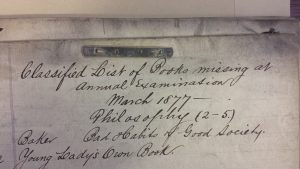 Classified List of Books missing at
Annual Examination
March 1877—
Philosophy (2-5)
Baker Bad Habits of Good Society.
Young Lady's Own Book.